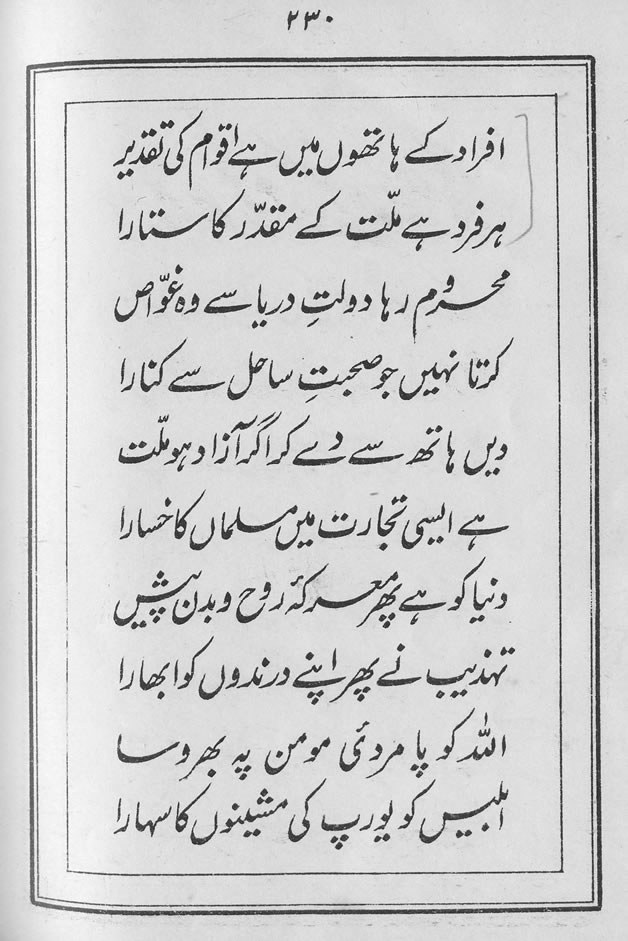 ۲۳۰
افراد کے ہاتھوں میں ہے اقوام کی تقدیر
ہر فرد ہے ملّت کے مقدّر کا ستارا
محروم رہا دولتِ دریا سے وہ غوّاص
کرتا نہیں جو صحبتِ ساحل سے کنارا
دیں ہاتھ سے دے کر اگر آزاد ہو ملّت
ہے ایسی تجارت میں مسلماں کا خسارا
دنیا کو ہے پھر معرکۂ روح و بدن پیش
تہذیب نے پھر اپنے درندوں کو ابھارا
اللہ کو پامردئ مومن پہ بھروسا
ابلیس کو یورپ کی مشینوں کا سہارا